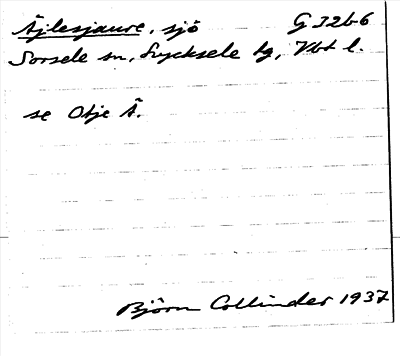 Äjlesjaure, sjö G 32b6
Sorsele sn, Lycksele lg, Vbt l.
se Otje Ä.
Björn Collinder 1937